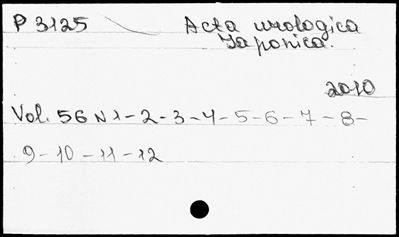 P 3125 Acta urologica
Japonica.
2010
Vol. 56 N 1 - 2 - 3 - 4 - 5 - 6 - 7 - 8 -
9 - 10 - 11 - 12